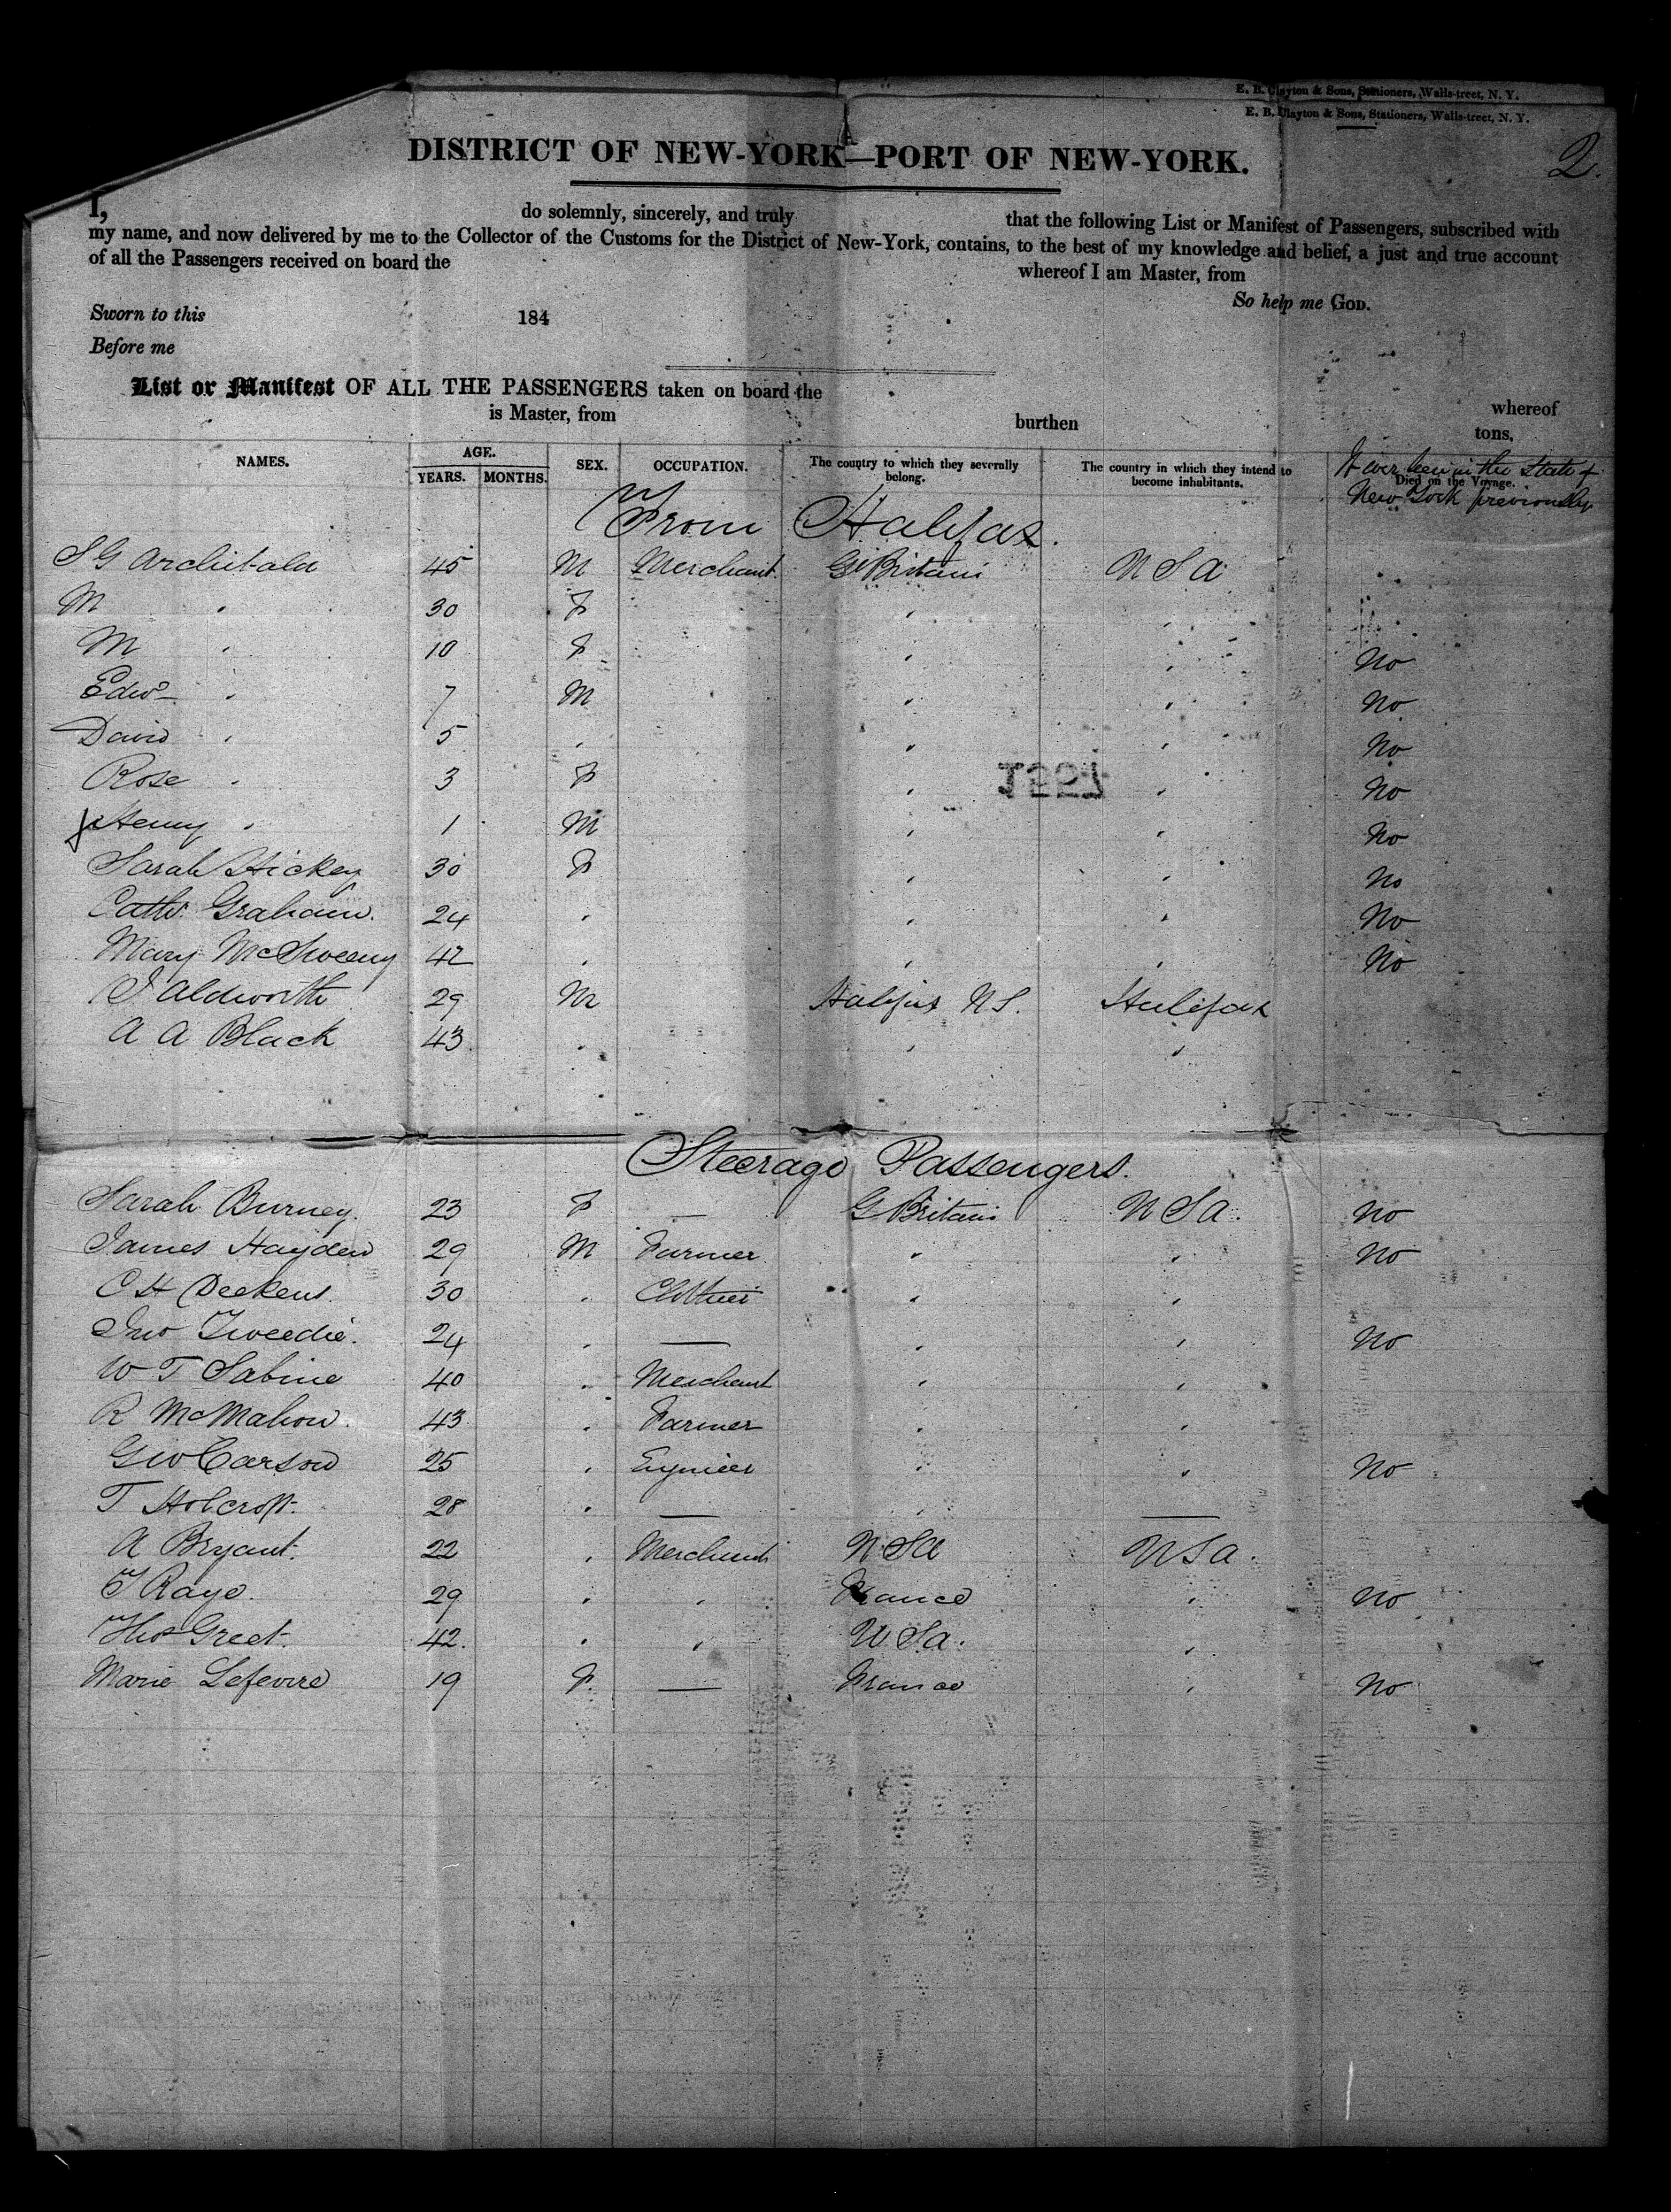 E. B. Clayton & Sons, Stationers, Walls-treet, N. Y.
E. B. Clayton & Sons, Stationers, Walls-treet, N. Y.
DISTRICT OF NEW-YORK—PORT OF NEW-YORK.
2.
I, do solemnly, sincerely, and truly that the following List or Manifest of Passengers, subscribed with
my name, and now delivered by me to the Collector of the Customs for the District of New-York, contains, to the best of my knowledge and belief, a just and true account
of all the Passengers received on board the whereof I am Master, from
So help me GOD.
Sworn to this 184
Before me
List or Manifest OF ALL THE PASSENGERS taken on board the whereof
is Master, from burthen tons,
NAMES. AGE. YEARS. MONTHS. SEX. OCCUPATION. The country to which they severally belong. The country in which they intend to become inhabitants. Died on the Voyage.
If ever been in the State of
New York previously
From Halifax.
S G Archibald 45 M Merchant Gt Britain U S A
M " 30 F " "
M " 10 F " " No
Edwd " 7 M " " No
David " 5 " " " No
Rose " 3 F " " No
Henry " 1 M " " No
Sarah Hickey 30 F " " No
Cathe Graham. 24 " " " No
Mary McSweeny 42 " " " No
J Aldworth 29 M Halifax N S. Halifax
A A Black 43 " " "
1357
Steerage Passengers.
Sarah Burney. 23 F — G Britain U S a. No
James Hayden 29 M Farmer " " No
C H Deekens. 30 " Clothier " "
Jno Tweedie. 24 " — " " No
W T Sabine 40 " Merchant " "
R McMahon. 43 " Farmer " "
Geo Carson 25 " Engineer " " No
T Holcroft. 28 " — " —
A Bryant. 22 " Merchant U S a U S a.
T Raye. 29 " " France " No
Thos Greet. 42. " " U S a. "
Marie Lefevre 19 F. — France " No